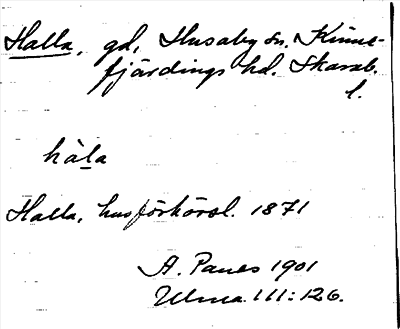 Halla, gd, Husaby sn. Kinne-
fjärdings hd. Skarab.
l.
håla
Halla, husförhörsl. 1871
A. Palues 1901
Ulma 111:126.